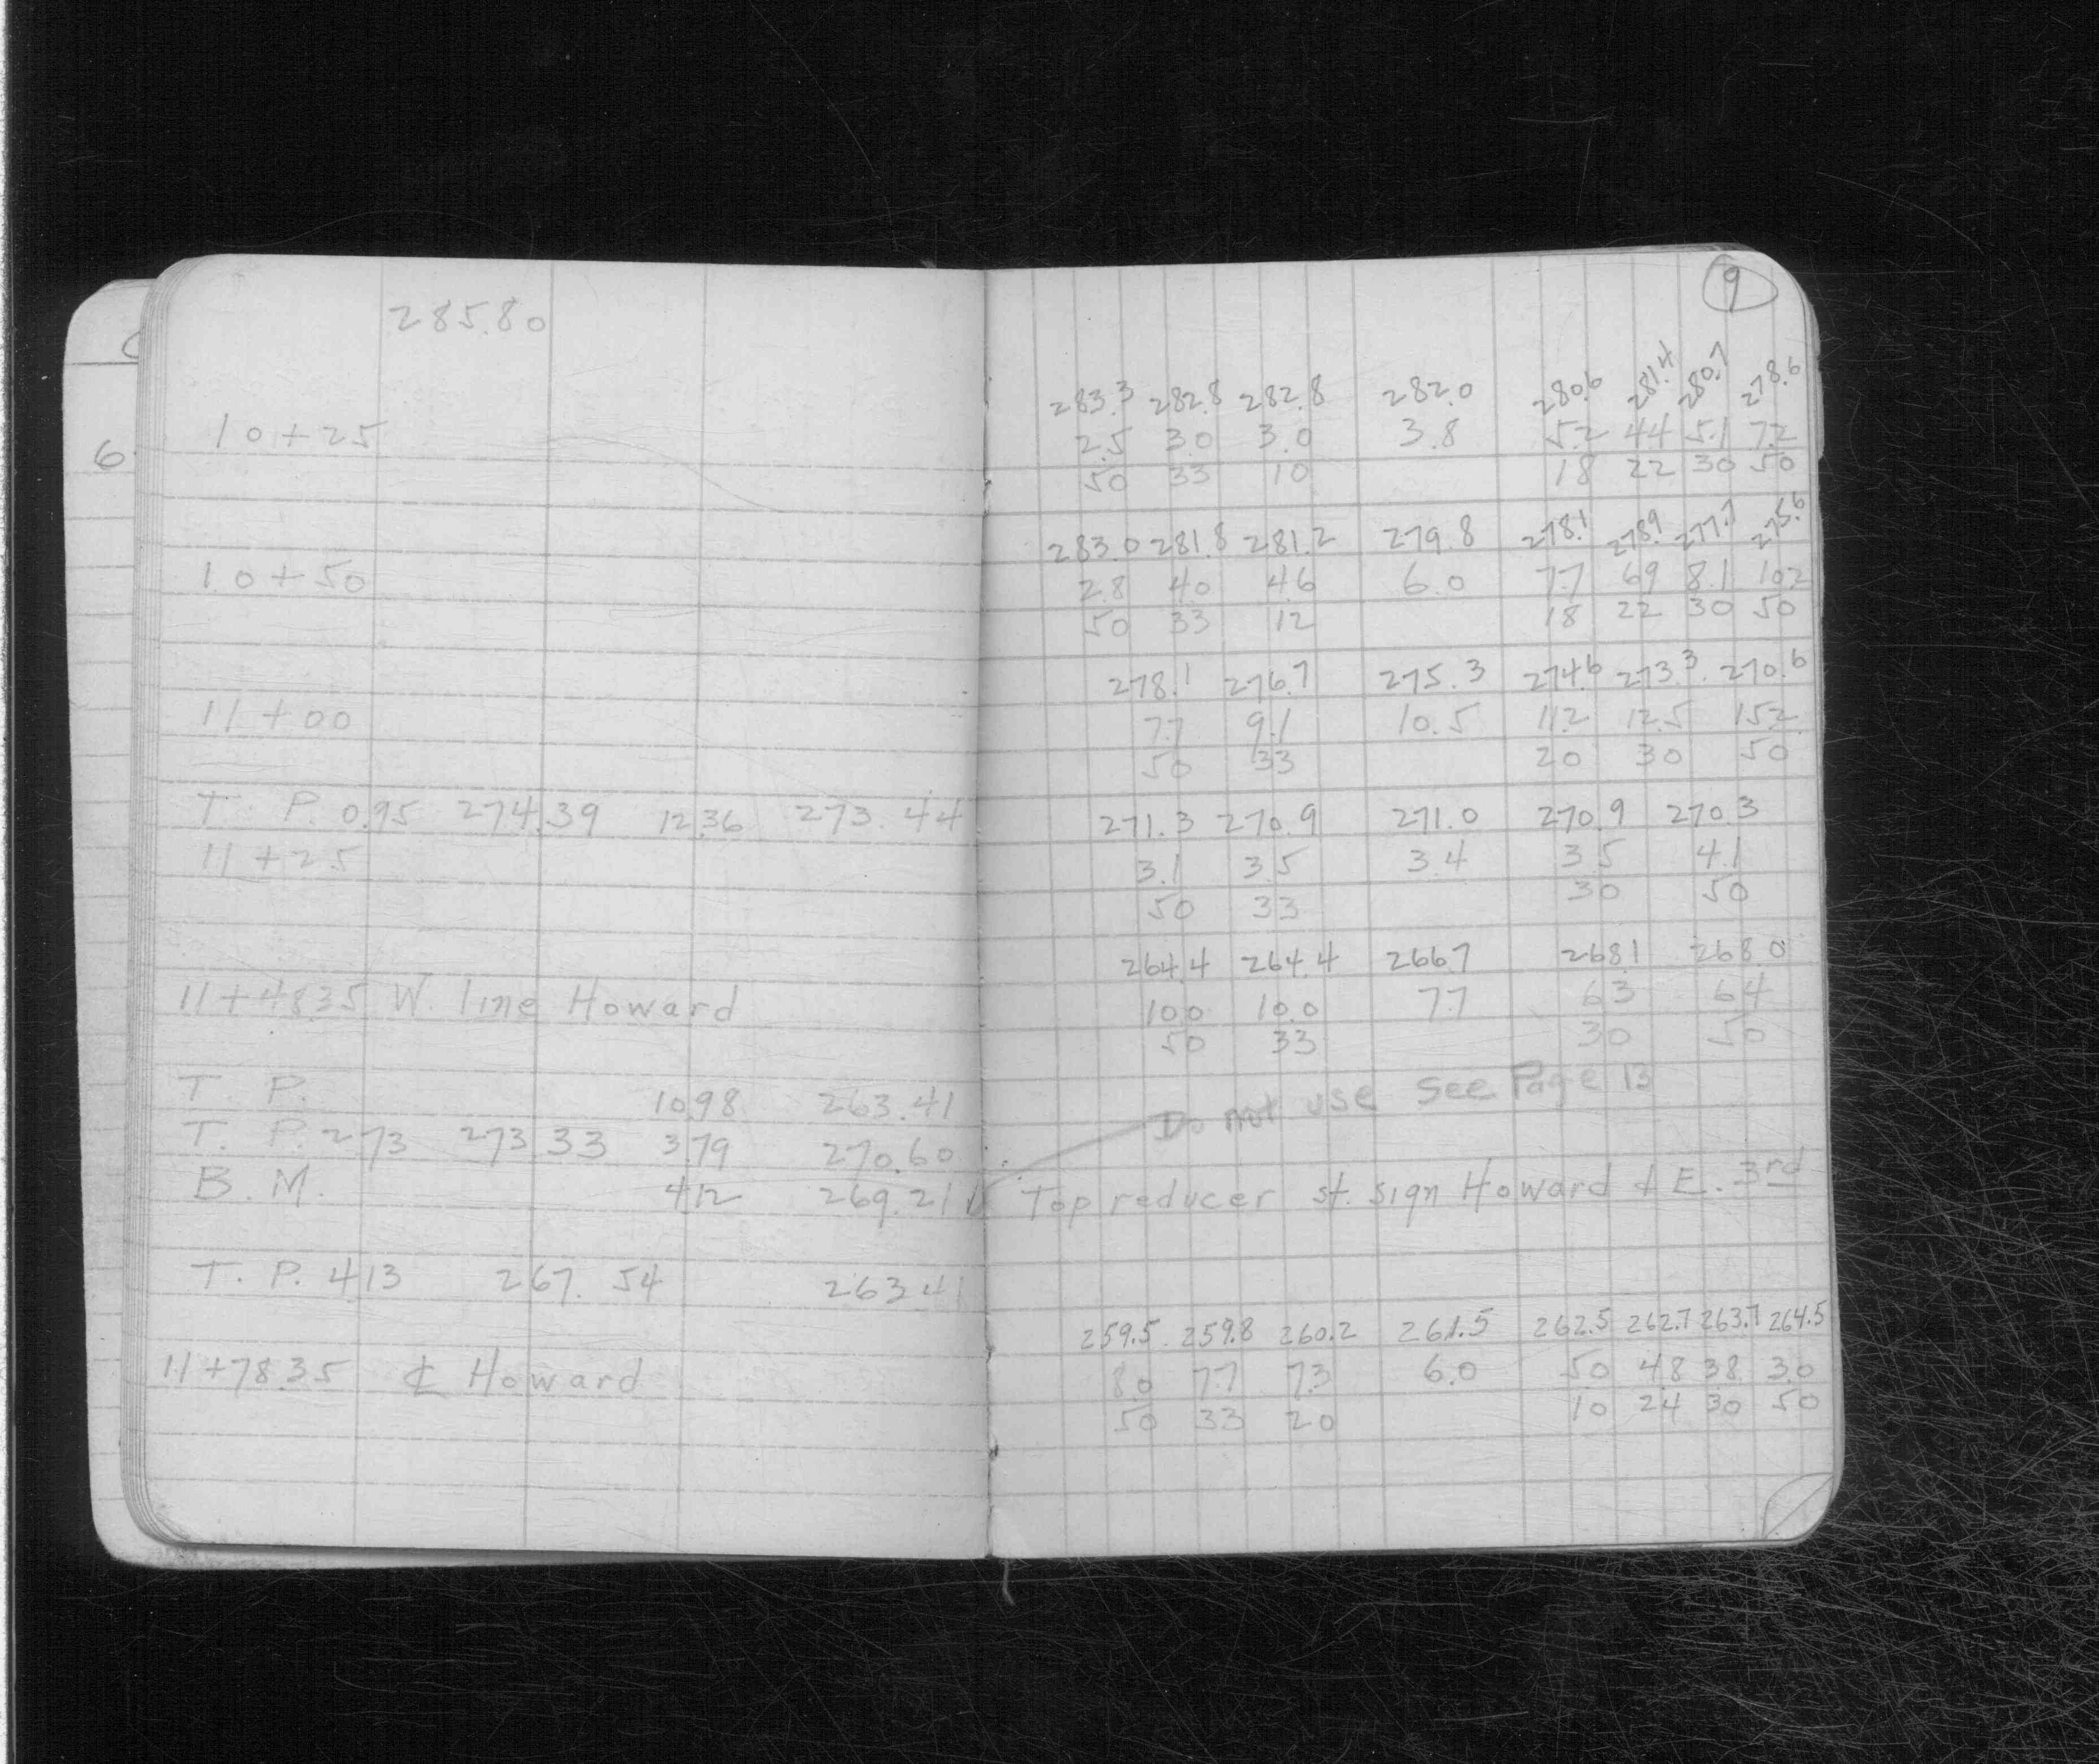 285.80
10+25
10+50
11+00
T. P. 0.95 274.39 12.36 273.44
11+25
11+48.35 W. line Howard
T. P. 10.98 263.41
T. P. 2.73 273.33 3.79 270.60
B. M. 4.12 269.21
T. P. 4.13 267.54 263.41
11+78.35 ℄ Howard
6
9
283.3 282.8 282.8 282.0 280.6 281.4 280.7 278.6
2.5 3.0 3.0 3.8 5.2 4.4 5.1 7.2
50 33 10 18 22 30 50
283.0 281.8 281.2 279.8 278.1 278.9 277.7 275.6
2.8 4.0 4.6 6.0 7.7 6.9 8.1 10.2
50 33 12 18 22 30 50
278.1 276.7 275.3 274.6 273.3 270.6
7.7 9.1 10.5 11.2 12.5 15.2
50 33 20 30 50
271.3 270.9 271.0 270.9 270.3
3.1 3.5 3.4 3.5 4.1
50 33 30 50
264.4 264.4 266.7 268.1 268.0
10.0 10.0 7.7 6.3 6.4
50 33 30 50
Do not use See Page 13
Top reducer st. sign Howard & E. 3rd
259.5 259.8 260.2 261.5 262.5 262.7 263.7 264.5
8.0 7.7 7.3 6.0 5.0 4.8 3.8 3.0
50 33 20 10 24 30 50